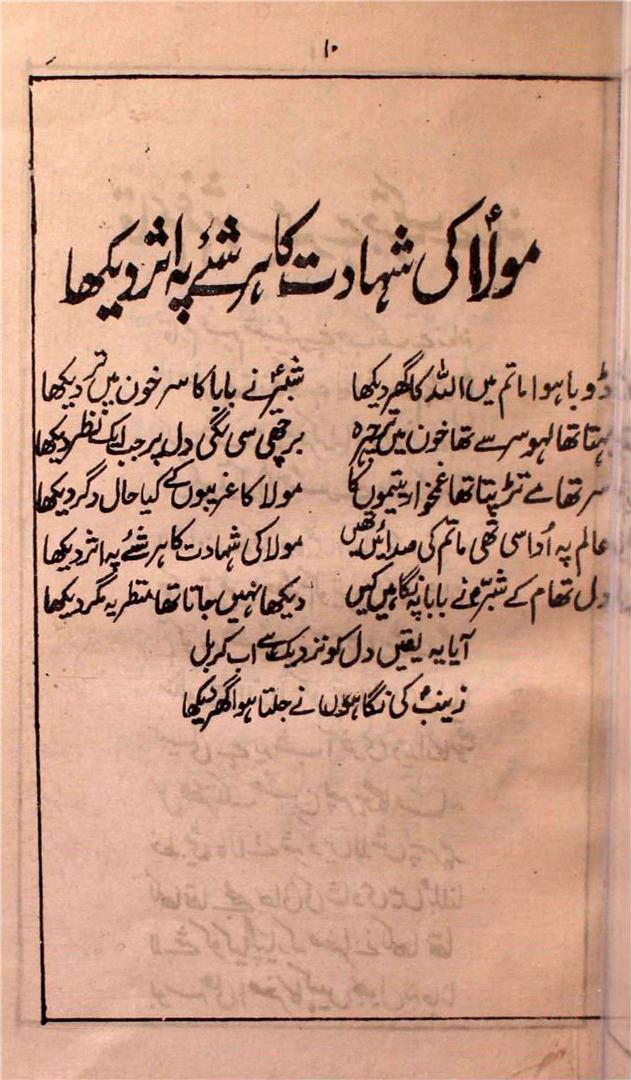 ۱۰
مولاؑ کی شہادت کا ہر شئے پہ اثر دیکھا
ڈوبا ہوا ماتم میں اللہ کا گھر دیکھا شبیرؑ نے بابا کا سر خون میں تر دیکھا
بہتا تھا لہو سر سے تھا خون میں تر چہرہ برچھی سی لگی دل پر جب ایک نظر دیکھا
سر تھامے تڑپتا تھا غمخوار یتیموں کا مولا کا غریبوں کے کیا حال دگر دیکھا
عالم پہ اُداسی تھی ماتم کی صدائیں تھیں مولا کی شہادت کا ہر شئے پہ اثر دیکھا
دل تھام کے شبرؑ نے بابا پہ نگاہیں کیں دیکھا نہیں جاتا تھا منظر یہ مگر دیکھا
آیا یہ یقیں دل کو نزدیک ہے اب کربل
زینبؑ کی نگاہوں نے جلتا ہوا گھر دیکھا